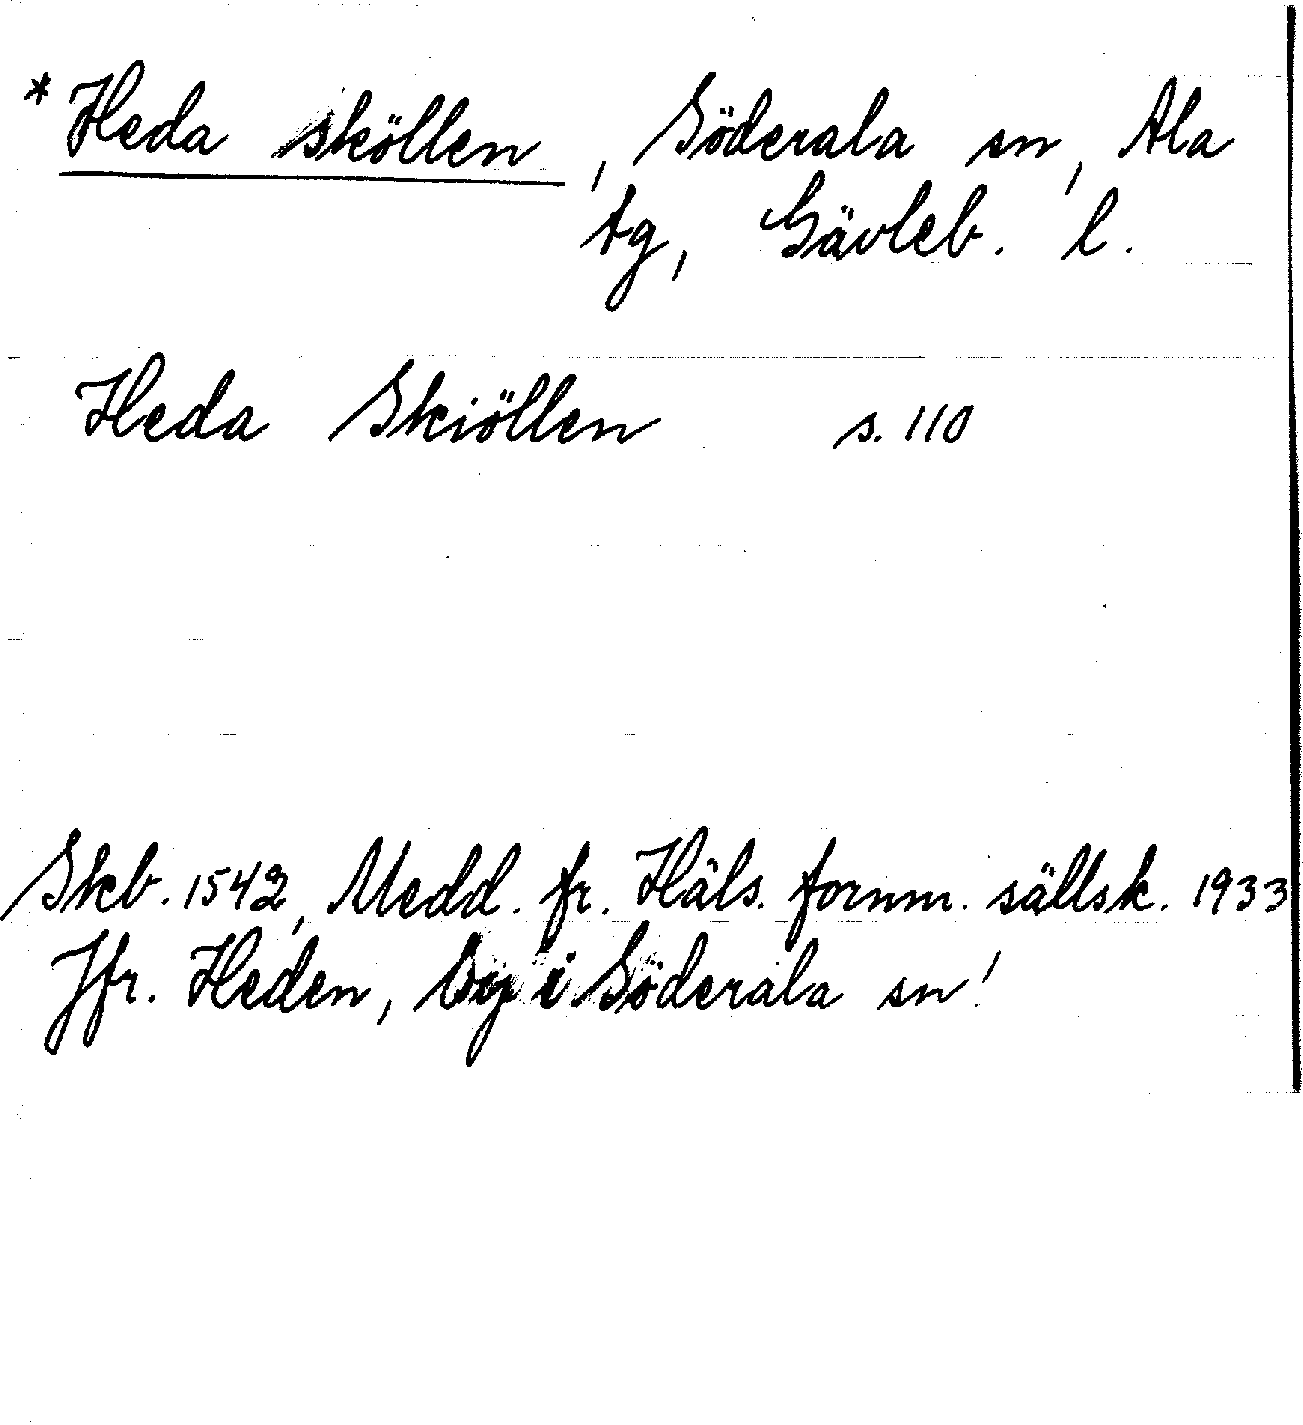 * Heda sköllen, Söderala sn, Ala
tg, Gävleb. l.
Heda Skiöllen s. 110
Skb. 1542, Medd. fr. Häls. fornm. sällsk. 1933
Jfr. Heden, by i Söderala sn!